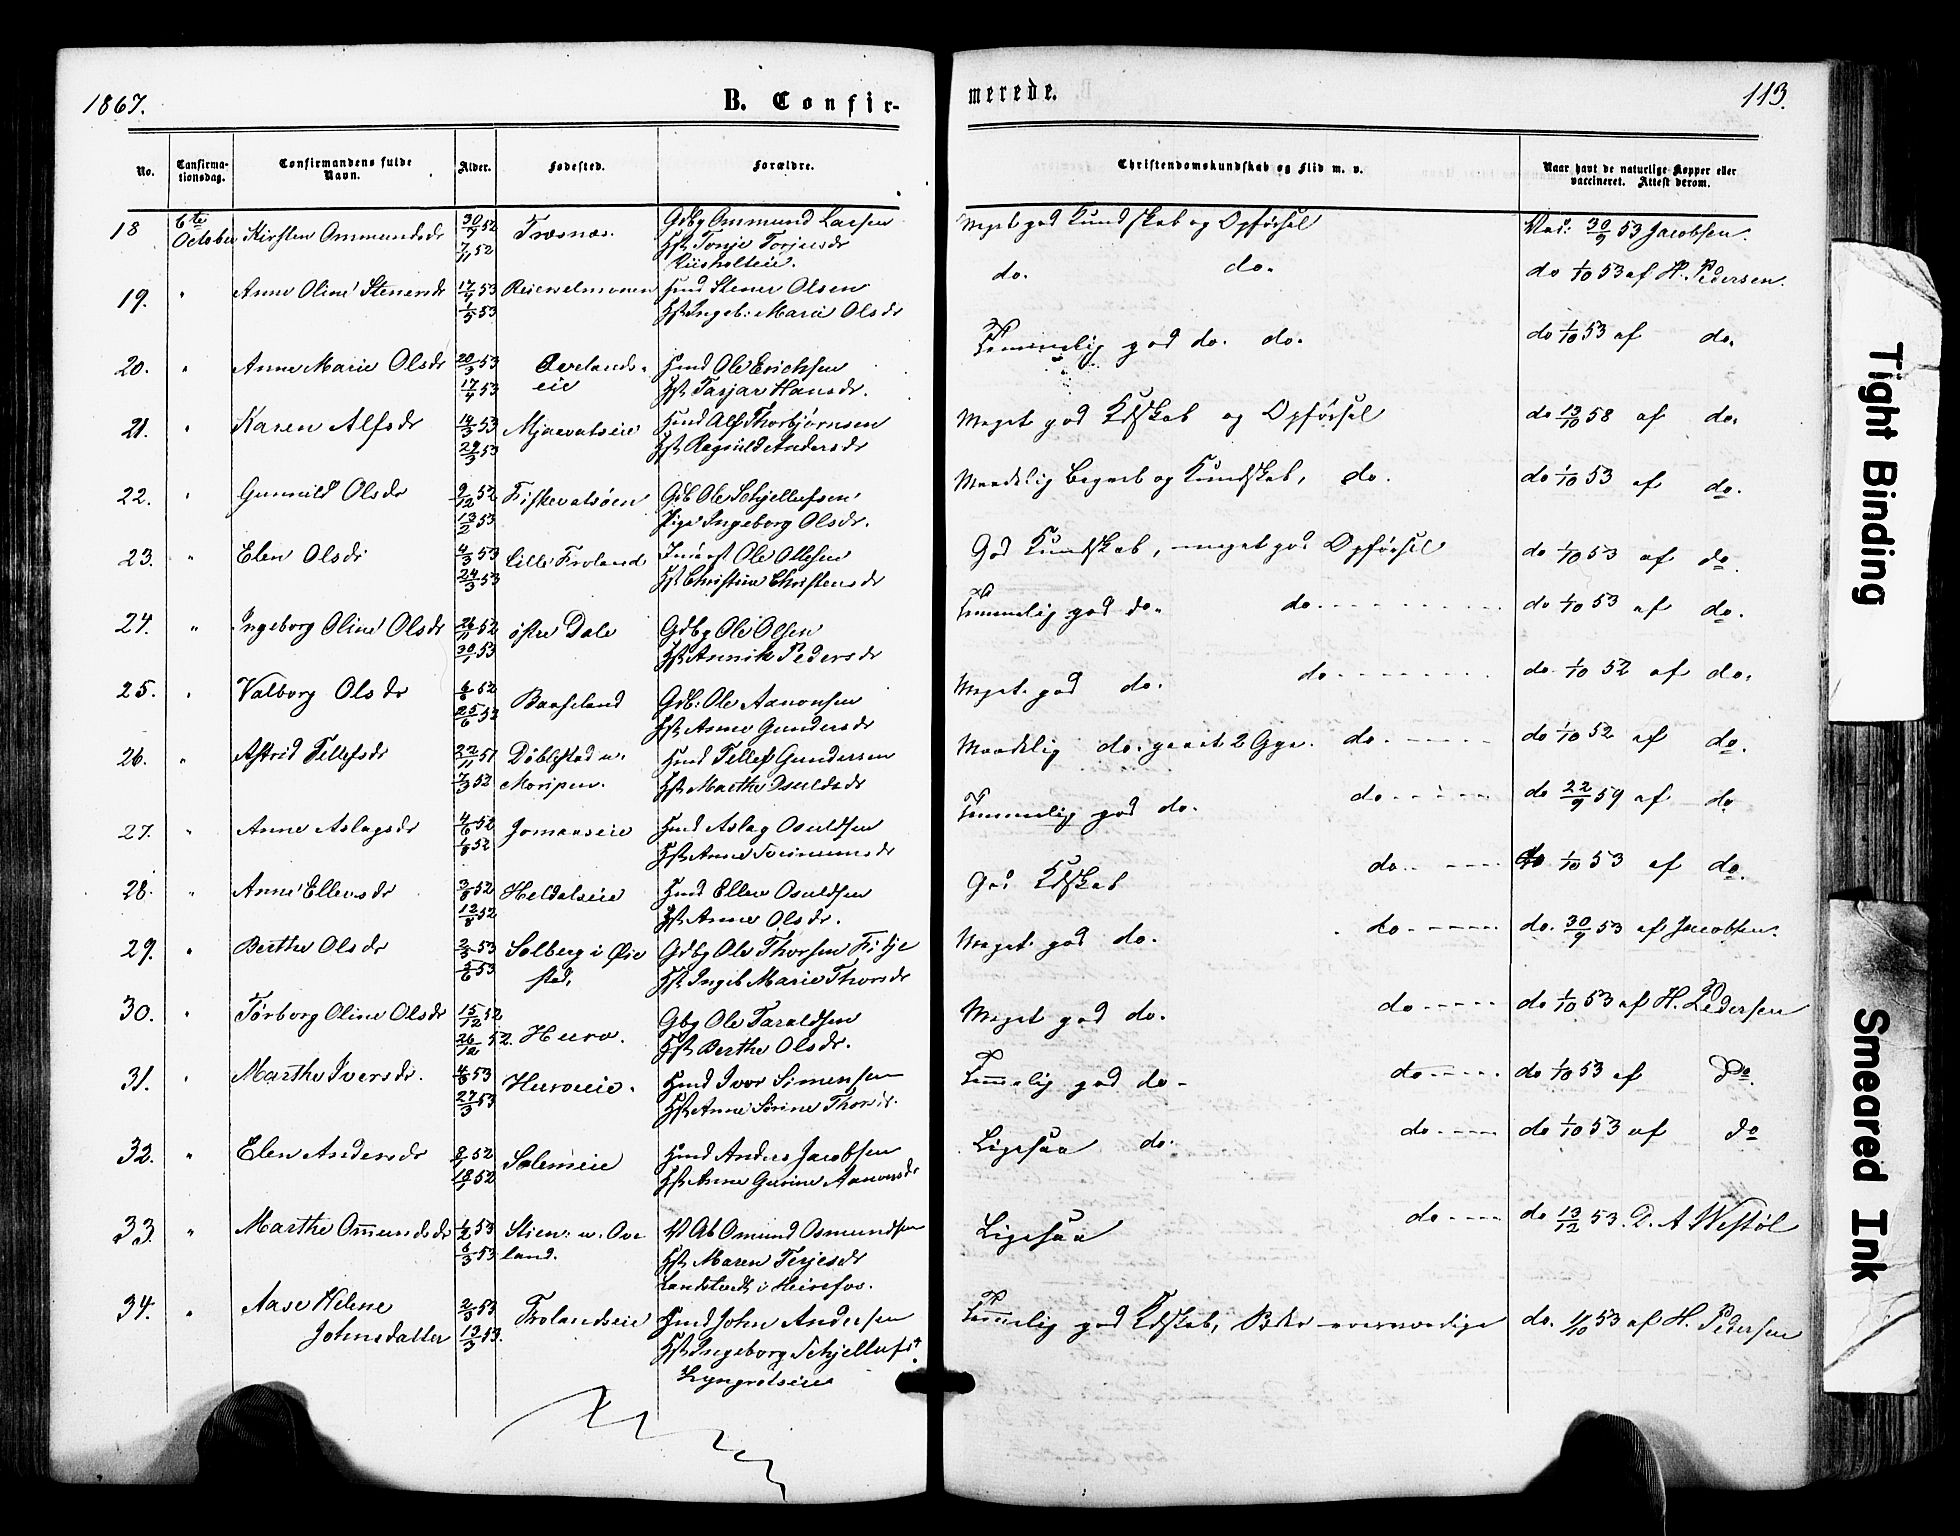 1867.
B. Confir-
merede.
113.
No.
Confirma-
tionsdag.
Confirmandens fulde
Navn.
Alder.
Fødested.
Forældre.
Christendomskundskab og Flid m. v.
Naar havt de naturlige Kopper eller
vaccineret. Attest derom.
18 6te October Kirsten Ommundsdr 30/9 52 7/11 52 Trosnæs. Gdbg Ommund Larsen
Hst Tonje Torjusdr
Riisholteie.
Meget god Kundskab og Opførsel
Vac: 30/9 53 Jacobsen.
19. " Anne Oline Stenersdr 17/4 53 1/5 53 Husmd Stener Olsen
Hst Ingeb: Marie Olsdr
do. do.
do 1/10 53 af H. Pedersen.
20. " Anne Marie Olsdr 20/3 53 17/4 53 Ovelands-
eie
Husmd Ole Erichsen
Hst Tarjar Hansdr.
Temmelig god do. do.
do 1/10 53 af do.
21. " Karen Alfsdr 14/3 53 29/3 53 Mjaavatseie Husmd Alf Thorbjørnsen
Hst Ragnild Andersdr
Meget god Kdskab og Opførsel
do 13/10 58 af do.
22. " Gunnild Olsdr 9/12 52 13/2 53 Fiskevatsøen Gdb Ole Schjellufsen
Pige Ingeborg Olsdr.
Maadelig Begreb og Kundskab, do.
do 1/10 53 af do.
23. " Elen Olsdr 4/3 53 24/3 53 Lille Froland Inderst Ole Ollesen
Hst Christine Christensdr
God Kundskab, meget god Opførsel
do 1/10 53 af do.
24. " Ingeborg Oline Olsdr 26/11 52 30/1 53 østre Dale Gdbg Ole Olsen
Hst Annik Pedersdr
Temmelig god do. do.
do 1/10 53 af do.
25. " Valborg Olsdr 6/6 52 25/6 52 Baaseland Gdb: Ole Aanonsen
Hst Anne Gundersdr
Meget god do. do
do. 1/10 52 af do.
26. " Astrid Tellefsdr 22/11 51 7/3 52 Døblestad u.
Moripen.
Husmd Tellef Gundersen
Hst Marthe Osuldsdr
Maadelig do. gaaet 2 Gge. do.
do 1/10 52 af do.
27. " Anne Aslagsdr 4/6 52 1/8 52 Jomaaseie Husmd Aslag Osuldsen
Hst Anne
Temmelig god do. do.
do 22/9 59 af do
28. " Anne Ellevsdr 3/8 52 12/8 52 Heldalseie Husmd Ellev Osuldsen
Hst Anne Olsdr.
God Kdskab do.
do 1/10 53 af do.
29. " Berthe Olsdr 2/5 53 5/6 53 Solberg i Øie
stad.
Gdbg Ole Thorsen Fidje
Hst Ingeb Marie Thorsdr
Meget god do. do.
do. 30/9 53 af Jacobsen.
30. " Torborg Oline Olsdr 15/12 52 26/12 52. Hurv. Gbg Ole Taraldsen
Hst Berthe Olsdr.
Meget god do. do
do 1/10 53 af H. Pedersen
31. " Marthe Iversdr. 4/3 53 27/3 53 Hurveie. Husmd Iver Simensen
Hst Anne Serine Thorsdr.
Temmelig god do. do
do 1/10 53 af Do.
32. " Elen Andersdr Solemeie Husmd Anders Jacobsen
Hst Anne Gurine Aanonsdr
Ligesaa do. do.
do 1/10 53 af do
33. " Marthe Ommundsdr 6/2 53 6/3 53 Stien: u. Ove
land.
Omund Osmundsen
Hst Maren Terjesdr
Ligesaa do
do 13/12 53. D. A Westøl
34. " Aase Helene
Johnsdatter
2/3 53 13/3 53. Frolandseie Husmd John Andersen
Hst Ingeborg Schjellufsd
Lyngrotseie
Temmelig god Kdskab,
do. 1/10 53 af H. Pedersen
Tight Binding
Smeared Ink